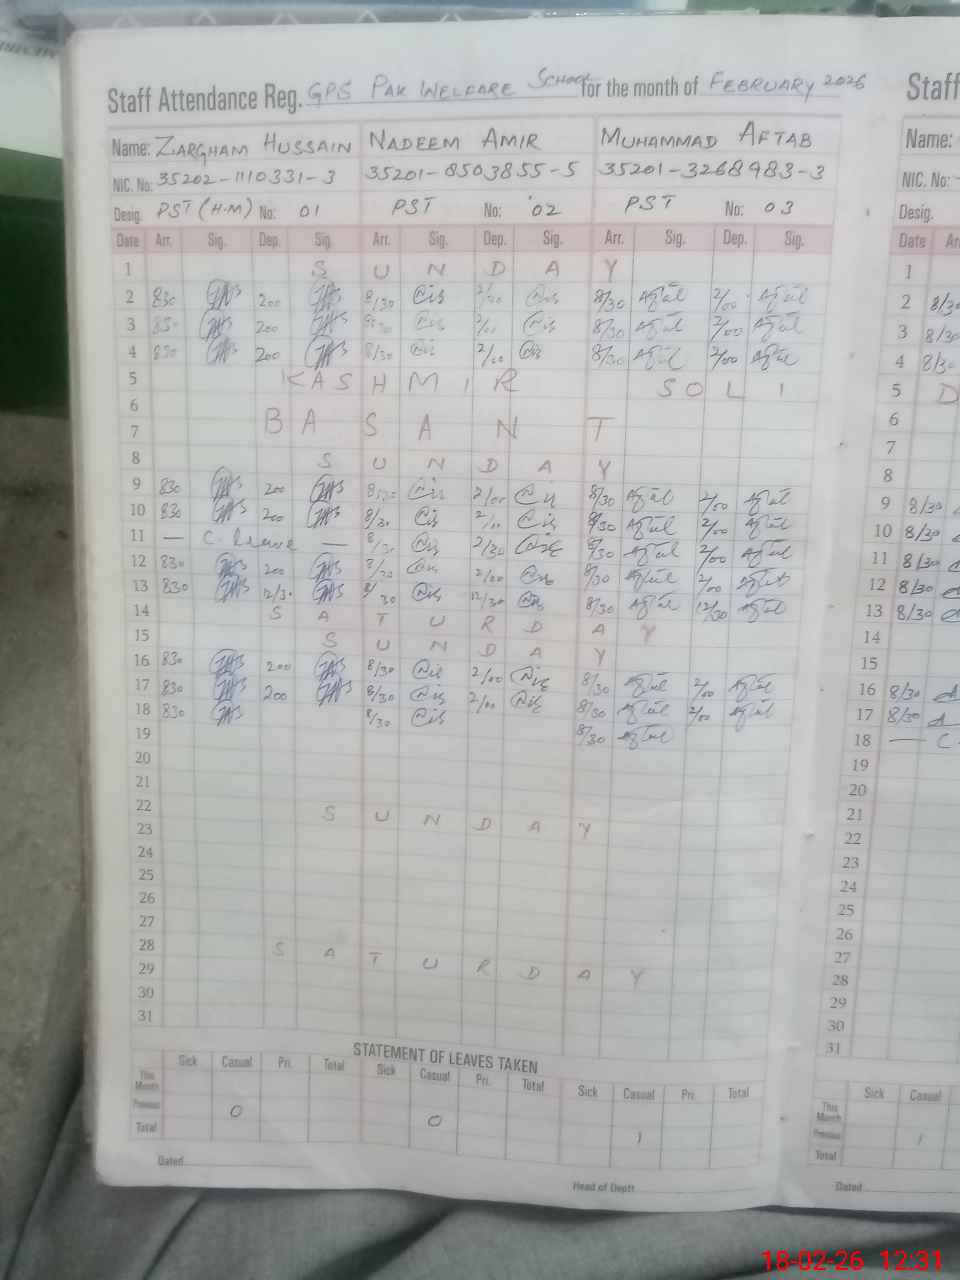 Staff Attendance Reg. GPS PAK WELFARE SCHOOL for the month of FEBRUARY 2026
Name: ZARGHAM HUSSAIN NADEEM AMIR MUHAMMAD AFTAB
NIC. No: 35202-1110331-3 35201-8503855-5 35201-3268983-3
Desig. PST (H.M) No: 01 PST No: 02 PST No: 03
Date Arr. Sig. Dep. Sig. Arr. Sig. Dep. Sig. Arr. Sig. Dep. Sig.
1 SUNDAY
2 830 200 8/30 2/00 8/30 2/00
3 830 200 8/30 2/00 8/30 2/00
4 830 200 8/30 2/00 8/30 2/00
5 KASHMIR SOLI
6
7 BASANT
8 SUNDAY
9 830 200 8/30 2/00 8/30 2/00
10 830 200 8/30 2/00 8/30 2/00
11 — C. Leave — 8/30 2/30 8/30 2/00
12 830 200 8/30 2/00 8/30 2/00
13 830 12/30 8/30 12/30 8/30 12/30
14 SATURDAY
15 SUNDAY
16 830 200 8/30 2/00 8/30 2/00
17 830 200 8/30 2/00 8/30 2/00
18 830 8/30 8/30
19
20
21
22 SUNDAY
23
24
25
26
27
28 SATURDAY
29
30
31
STATEMENT OF LEAVES TAKEN
Sick Casual Pri. Total Sick Casual Pri. Total Sick Casual Pri. Total
This Month
Previous 0 0 1
Total
Dated
Head of Deptt
Staff
Name:
NIC. No:
Desig.
Date
1
2 8/30
3 8/30
4 8/30
5 D
6
7
8
9 8/30
10 8/30
11 8/30
12 8/30
13 8/30
14
15
16 8/30
17 8/30
18 — C
19
20
21
22
23
24
25
26
27
28
29
30
31
Sick Casual
This Month
Previous 1
Total
Dated
18-02-26 12:31